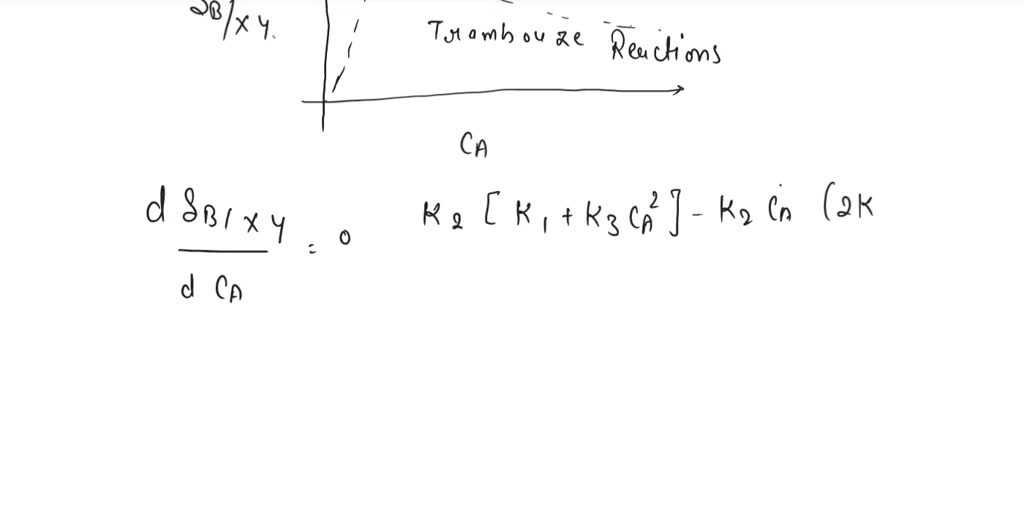 SB/XY.
Trambouze Reactions
CA
d SB/XY / d CA = 0 K2 [K1 + K3 CA²] - K2 CA (2K